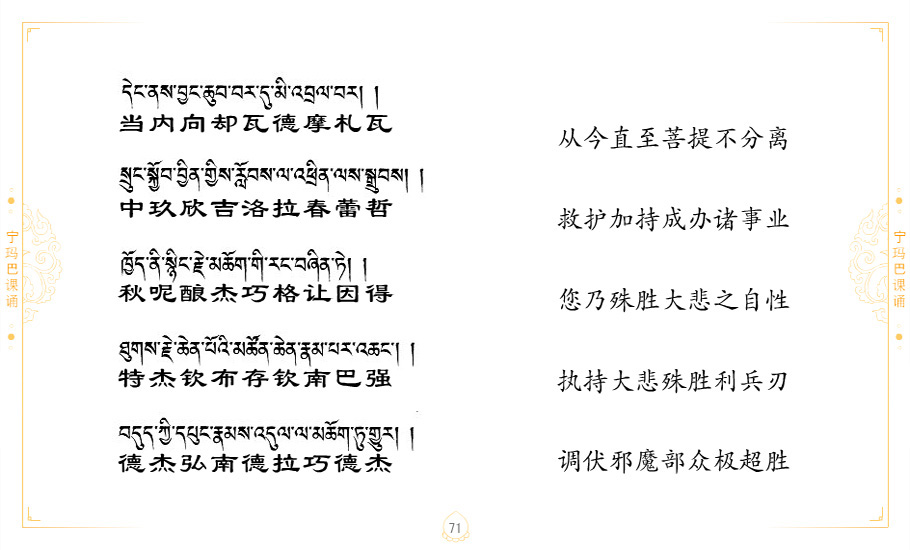 དེང་ནས་བྱང་ཆུབ་བར་དུ་མི་འབྲལ་བར། །
当内向却瓦德摩札瓦
从今直至菩提不分离
སྲུང་སྐྱོབ་བྱིན་གྱིས་རློབས་ལ་འཕྲིན་ལས་སྒྲུབས། །
中玖欣吉洛拉春蕾哲
救护加持成办诸事业
ཁྱོད་ནི་སྙིང་རྗེ་མཆོག་གི་རང་བཞིན་ཏེ། །
秋呢酿杰巧格让因得
您乃殊胜大悲之自性
ཐུགས་རྗེ་ཆེན་པོའི་མཚོན་ཆེན་རྣམ་པར་འཆང་། །
特杰钦布存钦南巴强
执持大悲殊胜利兵刃
བདུད་ཀྱི་དཔུང་རྣམས་འདུལ་ལ་མཆོག་ཏུ་གྱུར། །
德杰弘南德拉巧德杰
调伏邪魔部众极超胜
宁玛巴课诵
宁玛巴课诵
71